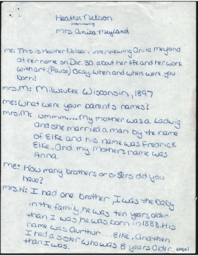 Heather Nelson
interviewing
Mrs Anita Meyland
me: This is Heather Nelson interviewing Anita Meyland
at her home on Dec. 30, about her life and her work
with art. (Pause) Okay, when and where were you
born?
Mrs. M: Milwaukee Wisconsin, 1897
me: What were your parents names?
Mrs. M: ummmm... My mother was a Ludwig
and she married a man by the name
of Elke and his name was Fredrick
Elke. And my Mothers name was
Anna.
Me: How many brothers or sisters did you
have?
Mrs. M: I had one brother, I was the baby
in the family, he was ten years older
than I was, he was born in 1888. His
name was Aurthur Elke, and then
I had a sister who was 8 years older
than I was.